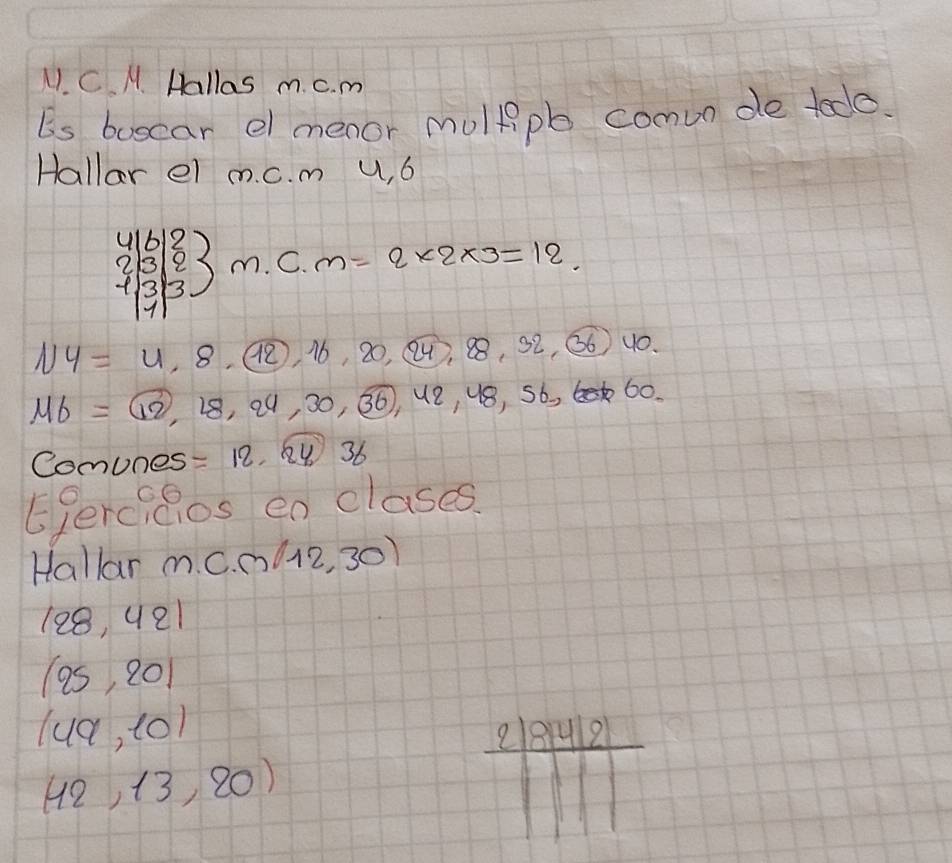 M.C.M. Hallas m.c.m
Es buscar el menor multiplo comun de todo.
Hallar el m.c.m 4,6
4|6|2
2|3|2
1|3|3
|1|
} m.c.m = 2×2×3=12.
M4 = 4, 8, 12, 16, 20, 24, 28, 32, 36, 40.
M6 = 12, 18, 24, 30, 36, 42, 48, 56, 60.
Comunes = 12, 24 36
Ejercicios en clases.
Hallar m.c.m (12, 30)
(28, 42)
(25, 20)
(49, 10)
(12, 13, 20)
2|8|4|2|